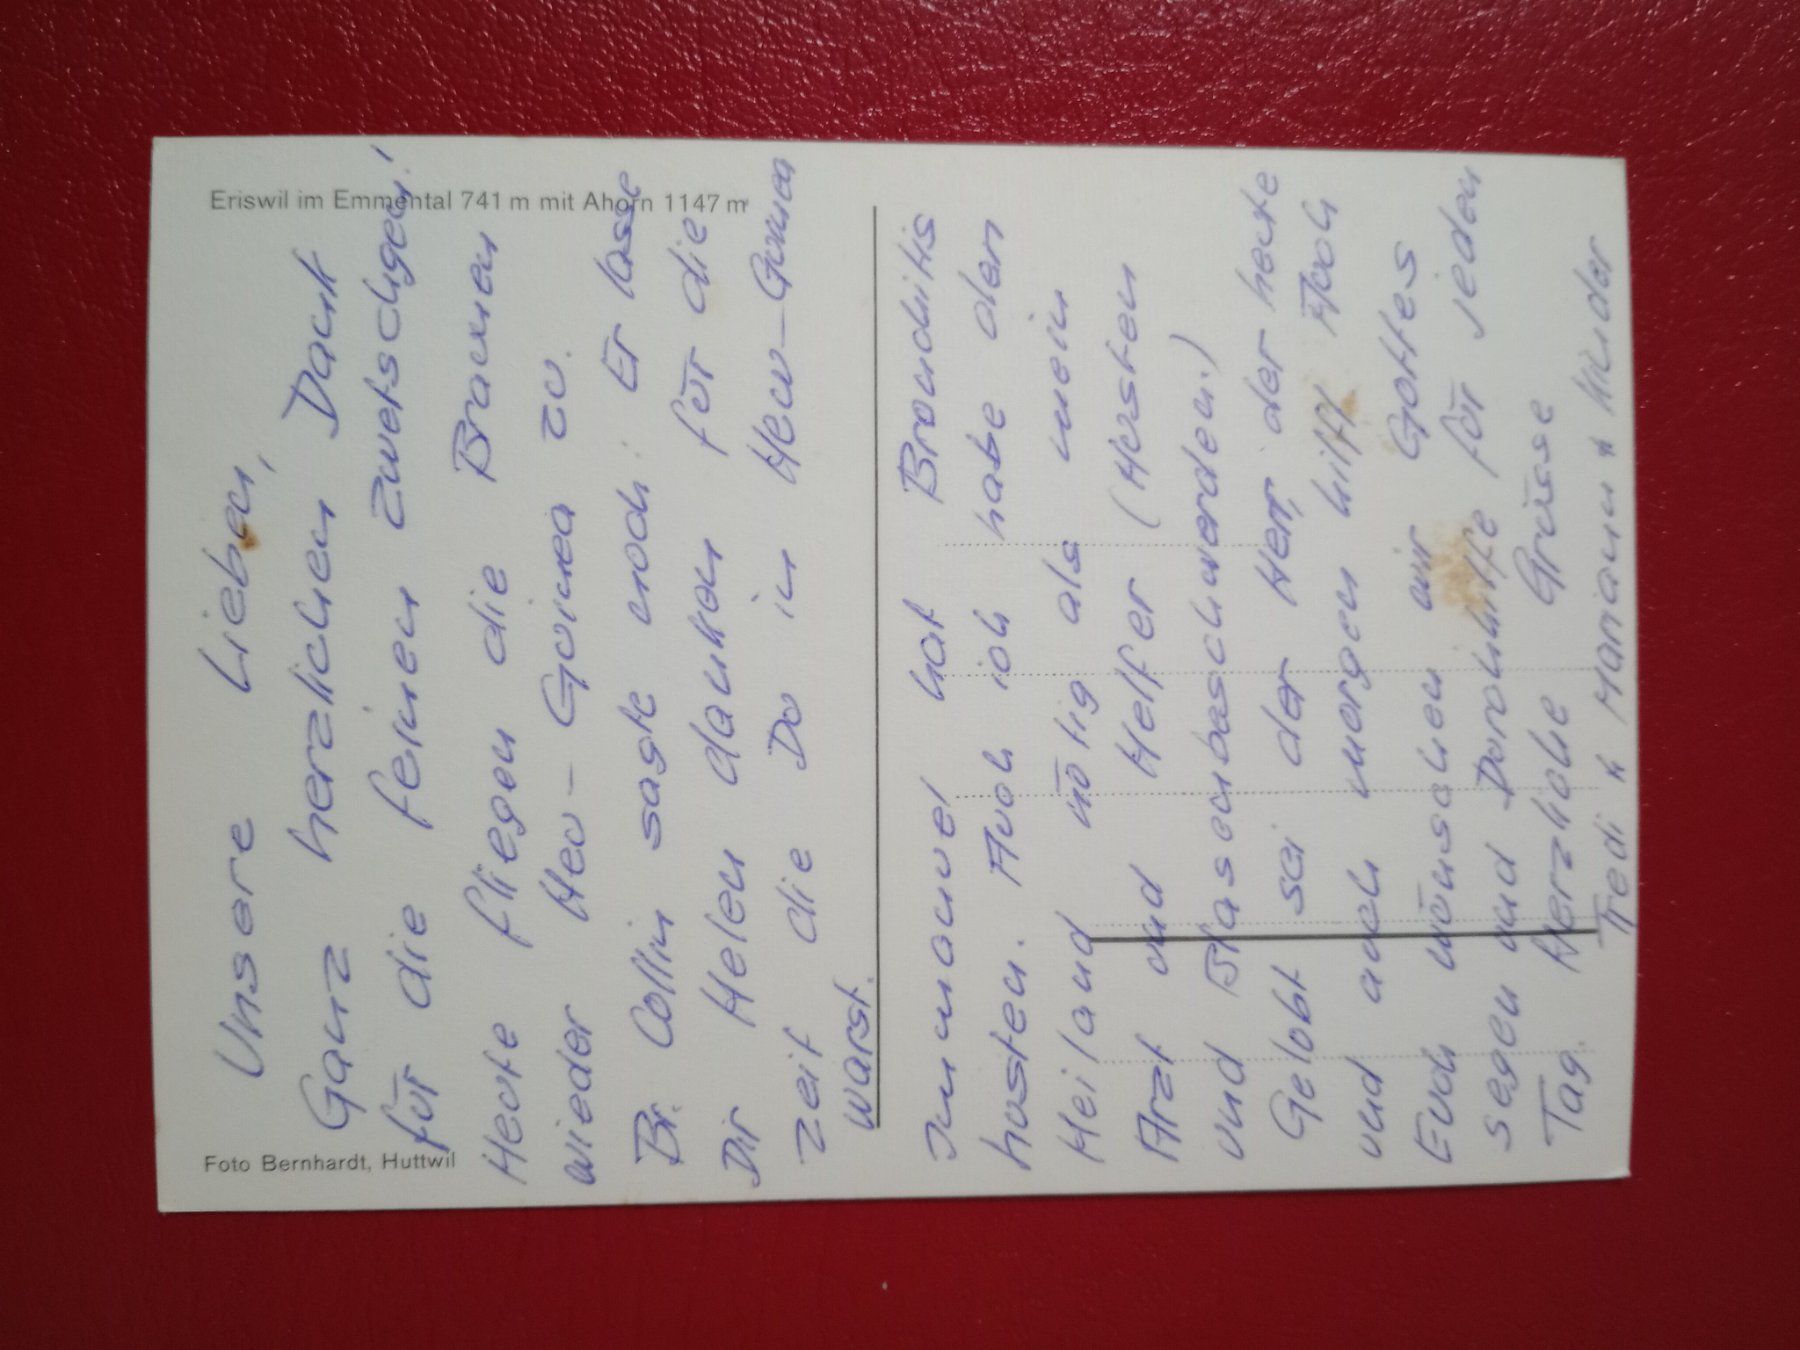 Eriswil im Emmental 741 m mit Ahorn 1147 m
Foto Bernhardt, Huttwil
Unsere Lieben,
Ganz herzlichen Dank
für die feinen Zwetschgen!
Heute fliegen die Braunen
wieder Neu-Guinea zu.
Br. Collin sagte noch: Er lasse
Dir Helen danken für die
Zeit die Du in Neu-Guinea
warst.
Immanuel hat Bronchitis
husten. Auch ich habe den
Heiland nötig als mein
Arzt und Helfer (Husten
und Blasenbeschwerden.)
Gelobt sei der Herr, der heute
und auch morgen hilft. Auch
Euch wünschen wir Gottes
Segen und Durchhilfe für jeden
Tag. Herzliche Grüsse
Fredi & Mariann & Kinder